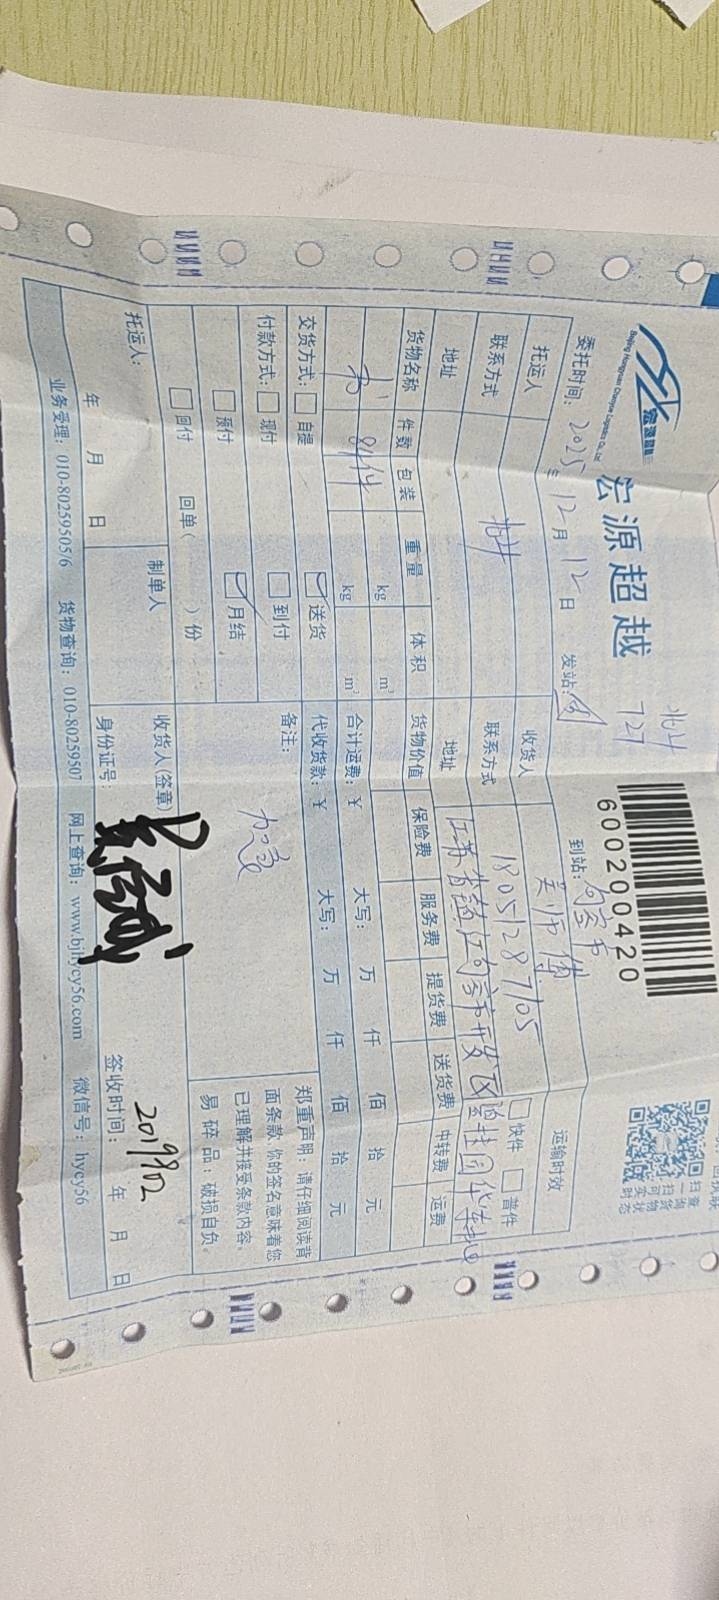 宏源超越
Beijing Hongyuan Chaoyue Logistics Co., Ltd
宏源超越
727
600200420
扫一扫可实时
查询货物状态
委托时间：2025年12月12日 发站： 到站：句容市
托运人 收货人 吴师傅 运输时效
联系方式 联系方式 18051287105 快件 普件
地址 地址 江苏省镇江句容市开发区碧桂园华
货物名称 件数 包装 重量 体积 货物价值 保险费 服务费 提货费 送货费 中转费 运费
书 81件 kg m³ 合计运费：¥ 大写： 万 仟 佰 拾 元
kg m³ 代收货款：¥ 大写： 万 仟 佰 拾 元
交货方式： 自提 送货 备注： 加急
付款方式： 现付 到付
预付 月结
回付 回单（ ）份
郑重声明：请仔细阅读背
面条款，你的签名意味着您
已理解并接受条款内容。
易碎品：破损自负。
托运人： 制单人 收货人(签章)
年 月 日 身份证号： 签收时间： 年 月 日
业务受理：010-80259505/6 货物查询：010-80259507 网上查询：www.bjhycy56.com 微信号：hycy56